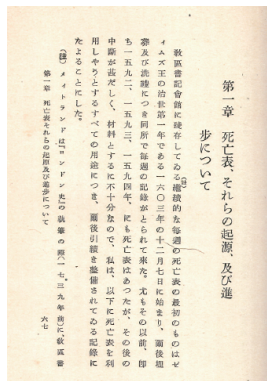 第一章　死亡表、それらの起源、及び進
歩について
教區書記會館に殘存してゐる繼續的な毎週の死亡表の最初のものはゼ
ィムズ王の治世第一年である一六〇三年の十二月七日に始まり、爾後埋
葬及び洗禮につき同所で毎週の記錄がとられて來た。尤もその以前、卽
ち一五九二、一五九三、一五九四年、にも死亡表はあつたが、その後の
中斷が甚だしく、材料とするに不十分なので、私は、以下に死亡表を利
用しやうとするすべての用途につき、爾後引續き整備されてゐる記錄に
たよることにした。
(註)
(註) メイトランドは『ロンドン史』の執筆の際(一七三九年前)に、敎區書
第一章　死亡表それらの起原及び進步について
六七